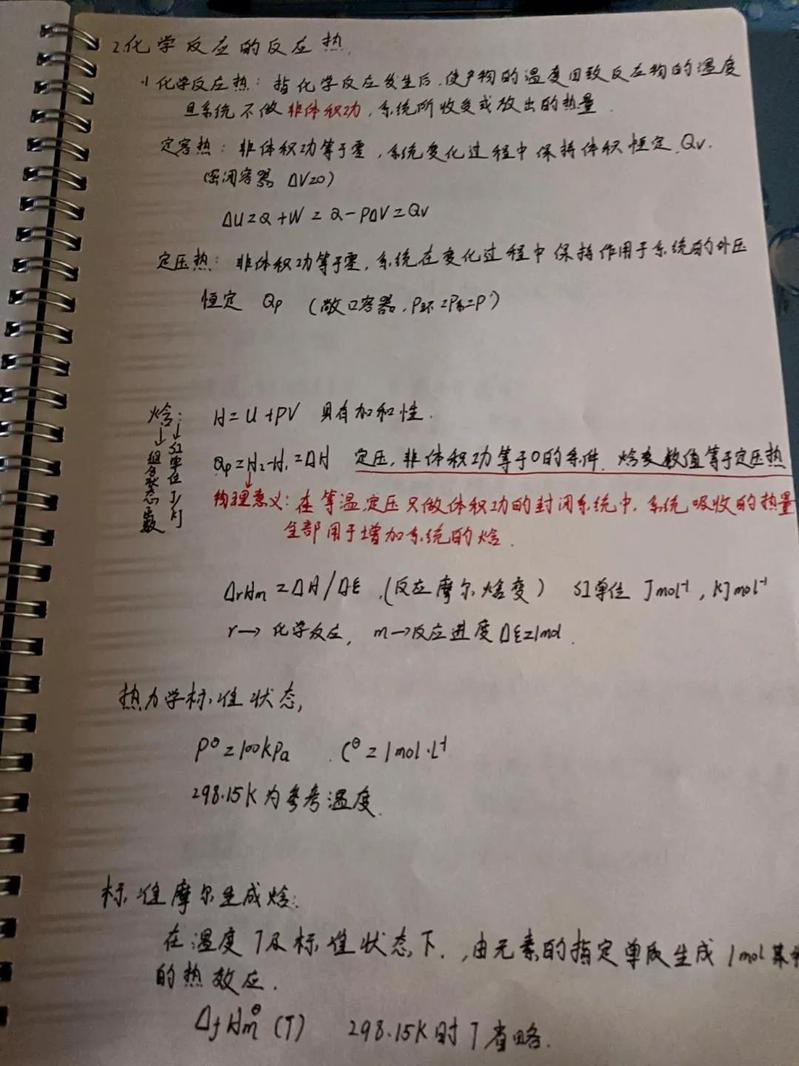 2.化学反应的反应热.
1)化学反应热：指化学反应发生后,使产物的温度回致反应物的温度
且系统不做非体积功,系统所吸变或放出的热量.
定容热：非体积功等于零,系统变化过程中保持体积恒定 Qv.
(密闭容器 ΔV=0)
ΔU=Q+W=Q-PΔV=Qv
定压热：非体积功等于零,系统在变化过程中保持作用于系统的外压
恒定 Qp (敞口容器,P环=P系=P)
焓： H=U+PV 具有加和性.
↓组合状态函数
↓SI单位 J/KJ
Qp=H₂-H₁=ΔH 定压,非体积功等于0的条件.焓变数值等于定压热
物理意义：在等温定压只做体积功的封闭系统中,系统吸收的热量
全部用于增加系统的焓.
ΔrHm=ΔH/Δξ.(反应摩尔焓变) SI单位 Jmol⁻¹,KJmol⁻¹
r→化学反应, m→反应进度Δξ=1mol.
热力学标准状态,
P^θ=100kPa . C^θ=1mol·L⁻¹
298.15K为参考温度.
标准摩尔生成焓:
在温度T及标准状态下.,由元素的指定单质生成1mol某
的热效应.
ΔfHm^θ(T) 298.15K时T省略.